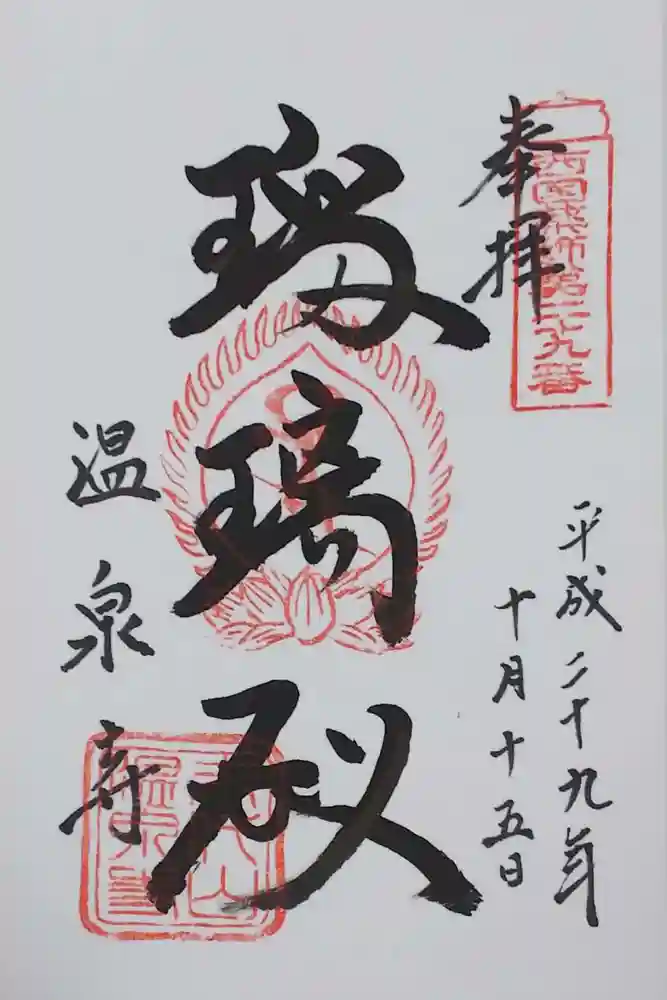 奉拝
西国薬師第二十九番
平成二十九年
十月十五日
瑠璃殿
温泉寺
末代山
温泉寺